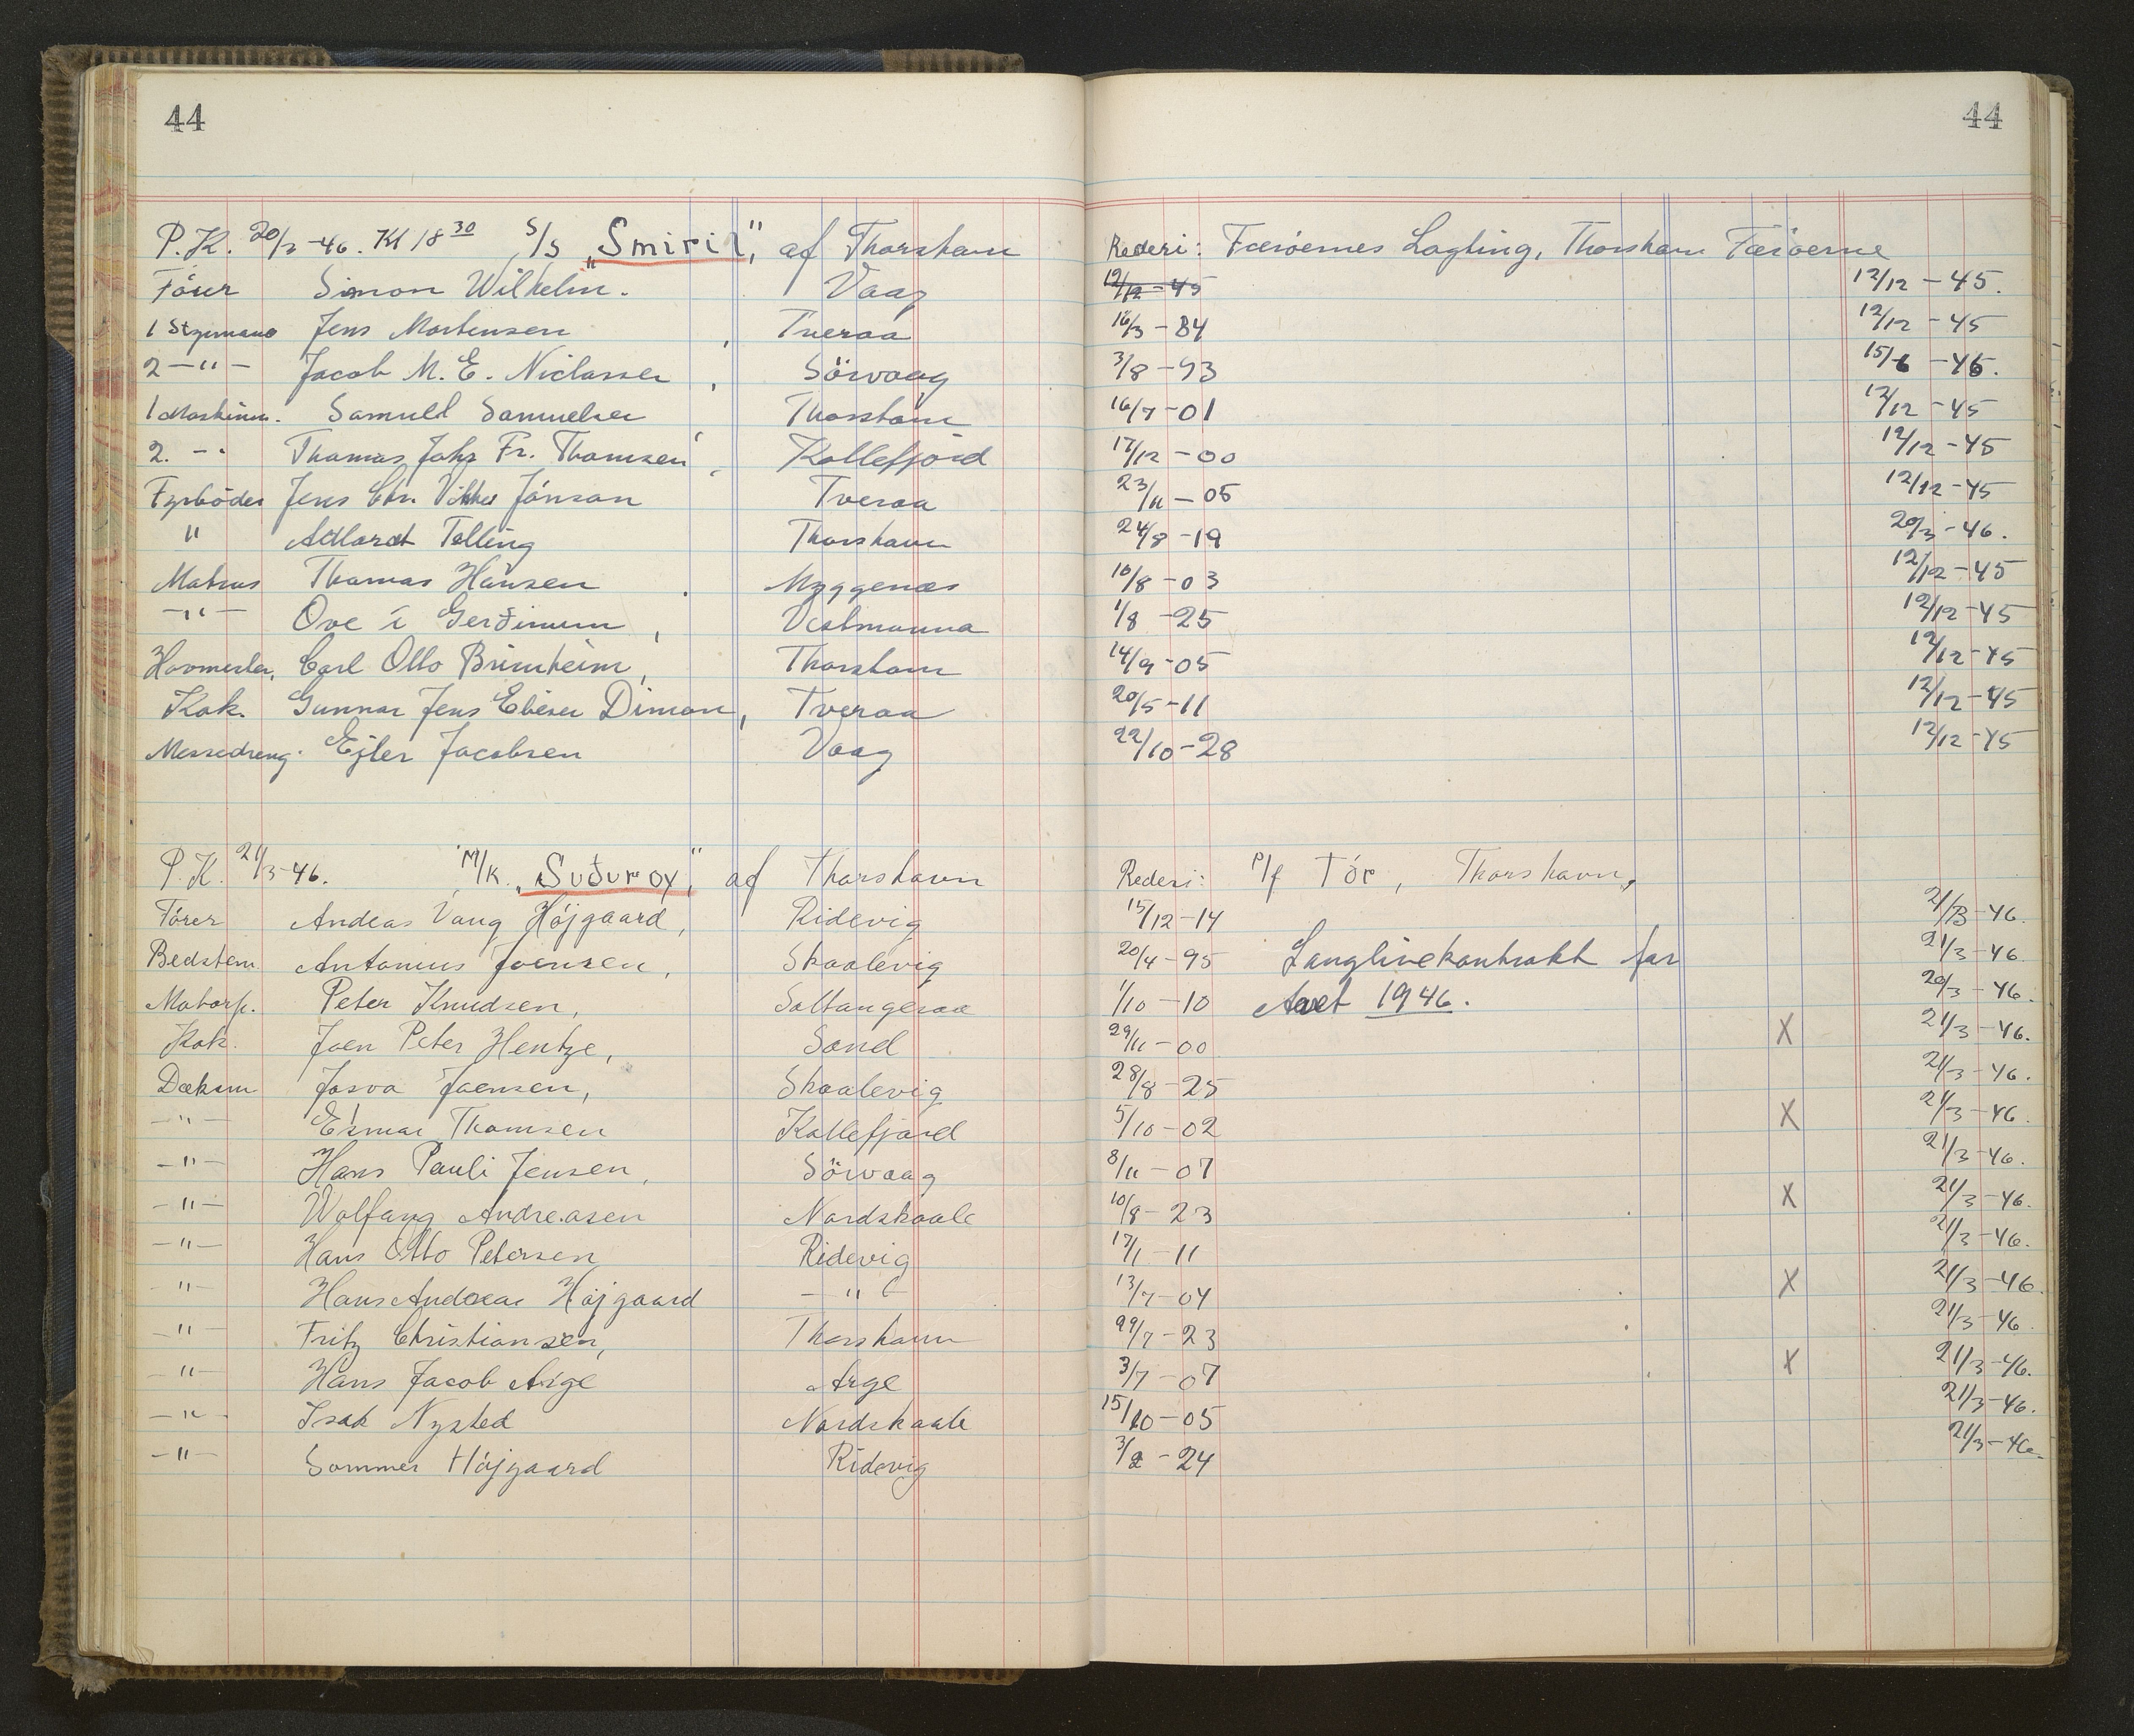 44
44
P.K. 20/3 -46. Kl 18 30 S/S „Smiril" af Thorshavn Rederi: Færöernes Lagting, Thorshavn Færöerne
Förer Simon Wilhelm. Vaag 12/12 - 45 12/12 - 45.
1 Styrmand Jens Mortensen, Tveraa 16/3 - 84 12/12 - 45
2 -"- Jacob M. E. Niclassen, Sörvaag 3/8 - 93 15/6 - 46.
1 Maskinm. Samuel Samuelsen Thorshavn 16/7 - 01 12/12 - 45
2. -"- Thomas Johs Fr. Thomsen, Kollefjörd 17/12 - 00 12/12 - 45
Fyrböder Jens Chr. Jönson Tveraa 23/11 - 05 12/12 - 45
" Telling Thorshavn 24/8 - 19 20/3 - 46.
Matros Thomas Hansen. Myggenæs 10/8 - 03 12/12 - 45
-"- Ove í Gerðinum, Vestmanna 1/8 - 25 12/12 - 45
Hovmester, Carl Otto Brimheim, Thorshavn 14/9 - 05 12/12 - 45
Kok. Gunnar Jens Ebeser Dimon, Tveraa 20/5 - 11 12/12 - 45
Messedreng. Ejler Jacobsen Vaag 22/10 - 28 12/12 - 45
P.K. 21/3 - 46. M/K. „Suðuroy" af Thorshavn Rederi: P/f Tór, Thorshavn,
Förer Andeas Vang Höjgaard, Ridevig 15/12 - 14 21/3 - 46.
Bedstem. Antonius Joensen, Skaalevig 20/4 - 95 Langlinekontrakt for 21/3 - 46
Motorp. Peter Knudsen, Saltangeraa 1/10 - 10 Aaret 1946. 20/3 - 46.
Kok. Joen Peter Hentze, Sand 29/11 - 00 X 21/3 - 46.
Dæksm Josva Joensen, Skaalevig 28/8 - 25 21/3 - 46.
-"- Thomsen Kollefjord 5/10 - 02 X 21/3 - 46.
-"- Hans Pauli Jensen, Sörvaag 8/11 - 07 21/3 - 46.
-"- Wolfang Andreasen Nordskaale 10/8 - 23 X 21/3 - 46.
-"- Hans Otto Petersen Ridevig 17/1 - 11 21/3 - 46.
-"- Hans Andreas Höjgaard -"- 13/7 - 04 X 21/3 - 46
-"- Fritz Christiansen, Thorshavn 29/7 - 23 21/3 - 46.
-"- Hans Jacob Arge Arge 3/7 - 07 X 21/3 - 46.
-"- Isak Nysted Nordskaale 15/10 - 05 21/3 - 46.
-"- Sommer Höjgaard Ridevig 3/2 - 24 21/3 - 46.